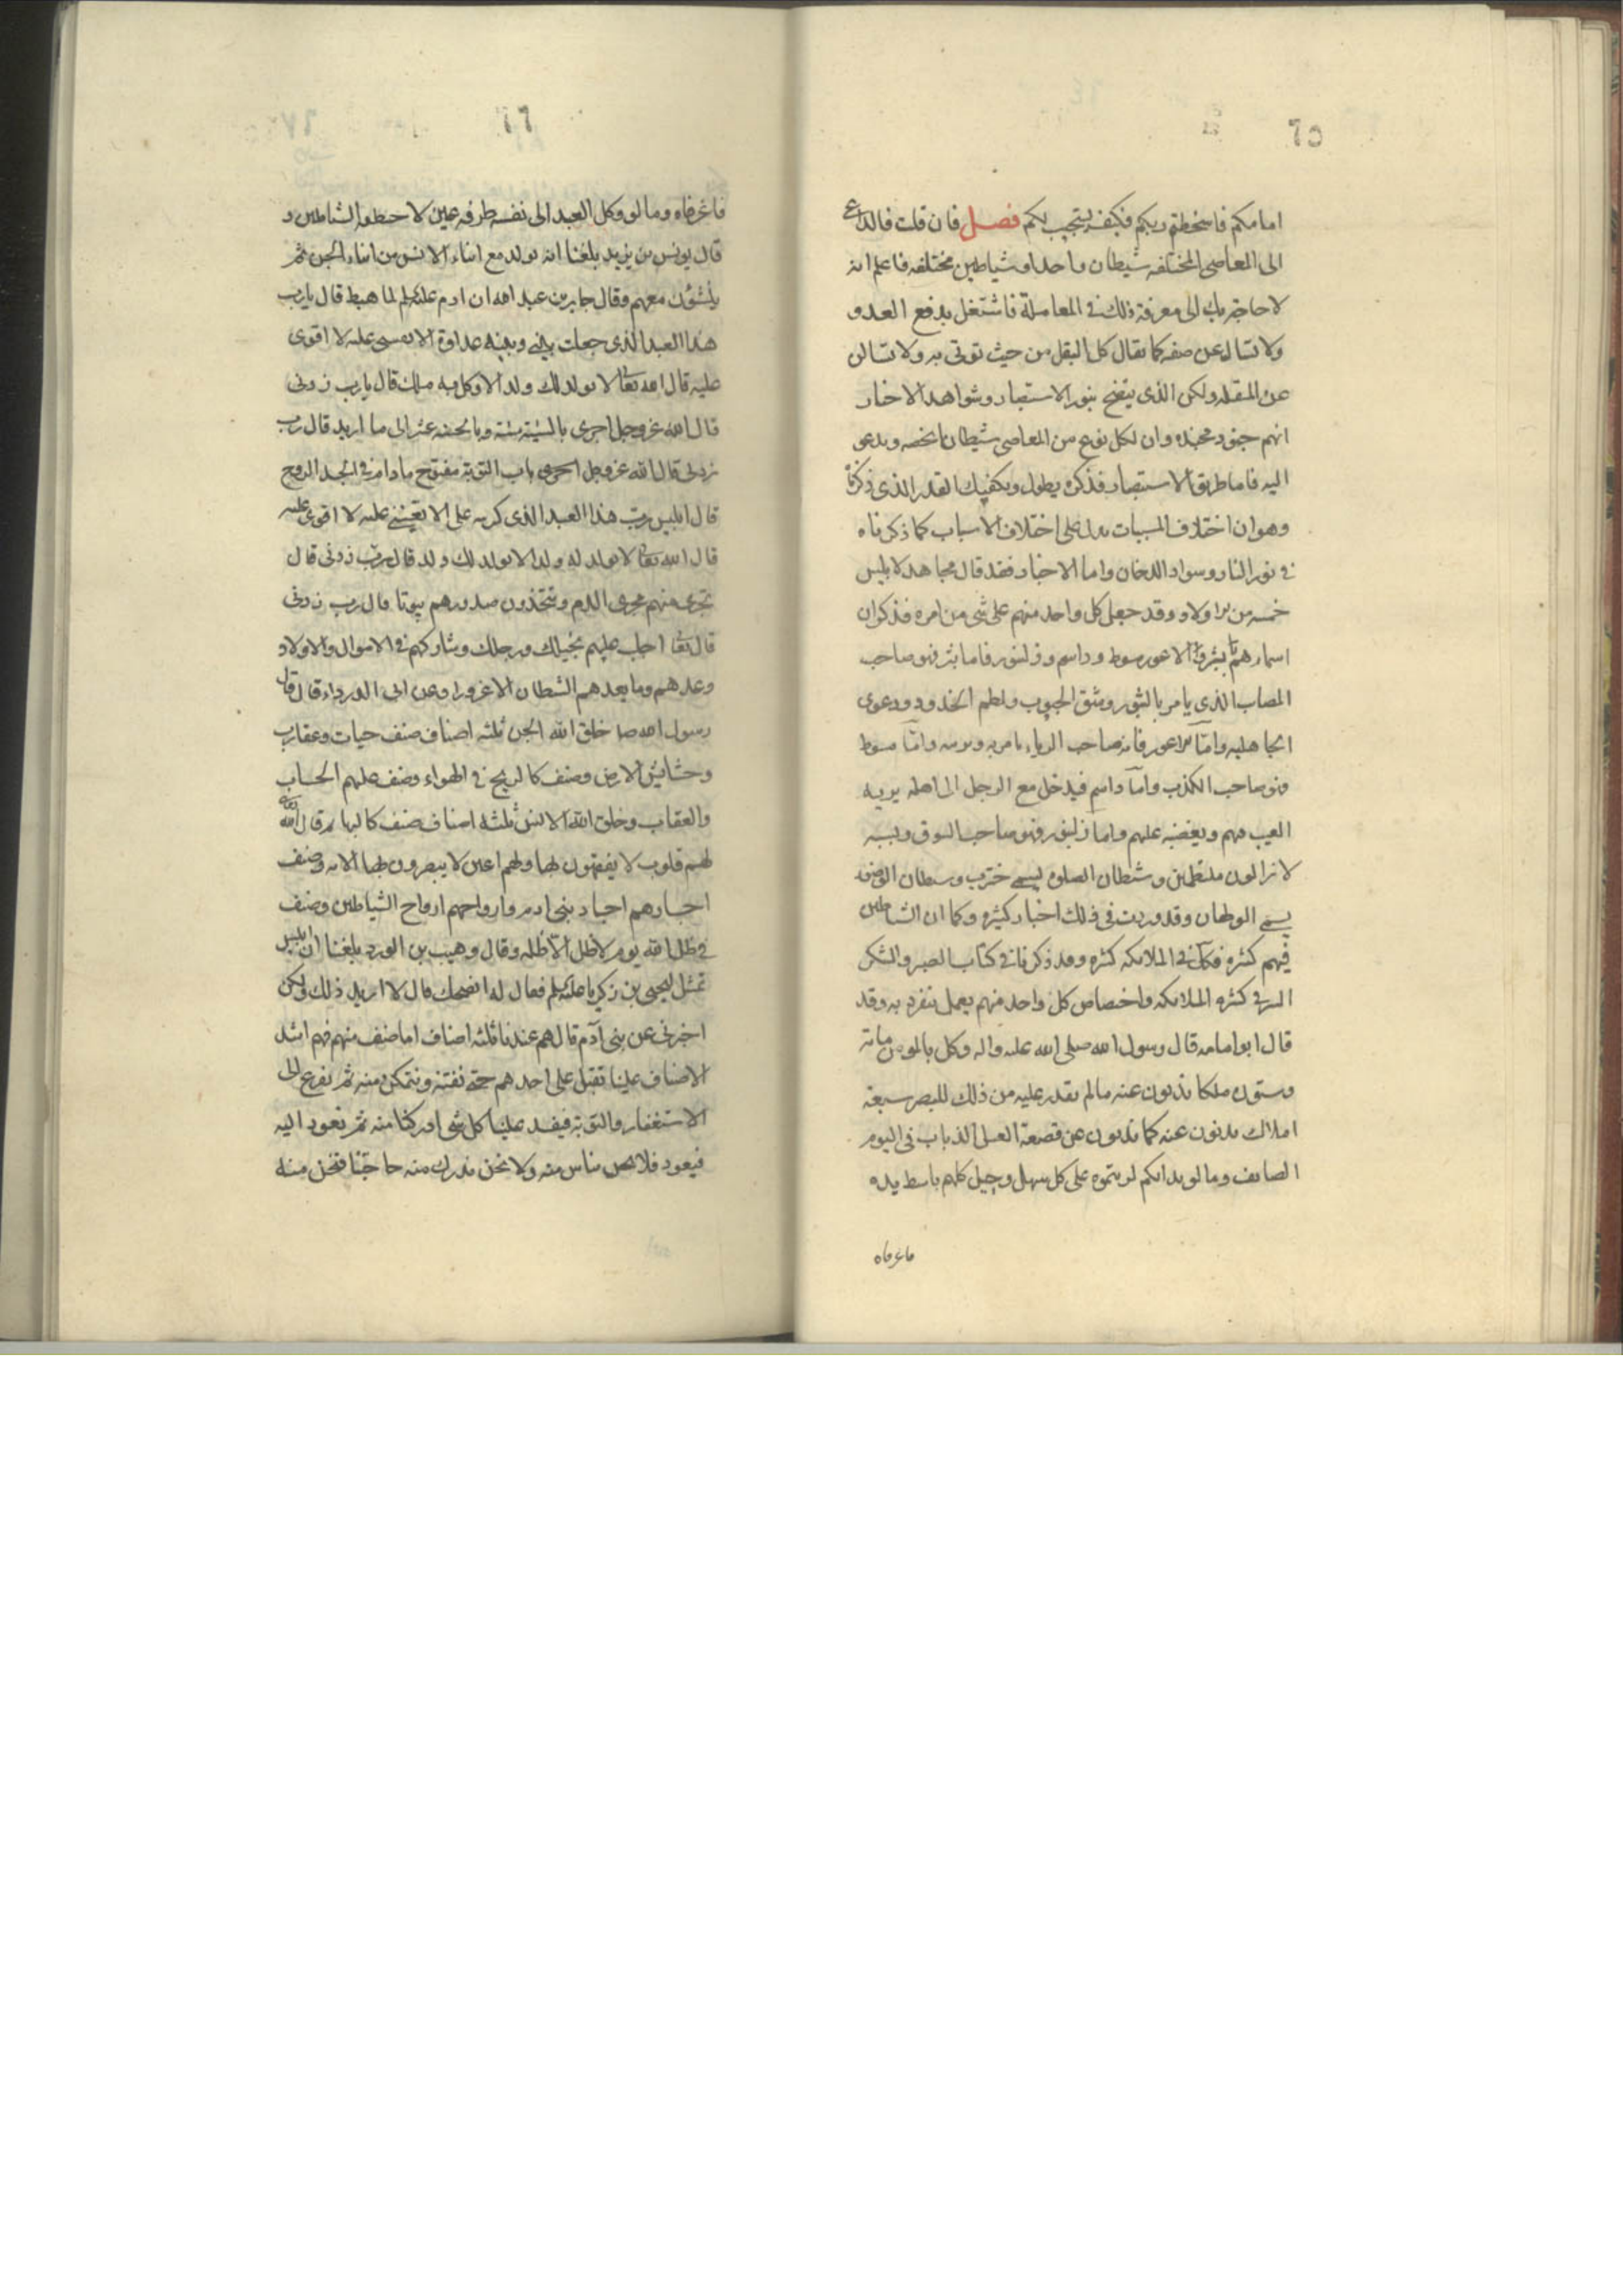 ٦٥
امامكم فاسخطتم ربكم فكيف يستجيب لكم فصل فان قلت فالداعي
الى المعاصى المختلفه شيطان واحد او شياطين مختلفه فاعلم انه
لا حاجة بك الى معرفة ذلك فى المعاملة فاشتغل بدفع العدو
ولا تسال عن صفه كما يقال كل البقل من حيث توتى به ولا تسالن
عن المبقله ولكن الذى يتضح بنور الاستبصار وشواهد الاخبار
انهم جنود مجنده وان لكل نوع من المعاصى شيطانا يخصه ويدعو
اليه فاما طريق الاستبصار فذكره يطول ويكفيك القدر الذى ذكرنا
وهو ان اختلاف المسببات يدل على اختلاف الاسباب كما ذكرناه
فى نور النار وسواد الدخان واما الاخبار فقد قال مجاهد لابليس
خمسه من الاولاد وقد جعل كل واحد منهم على شى من امره فذكر ان
اسمارهم ثبر والاعور وسوط وداسم وزلنبور فاما ثبر فهو صاحب
المصاب الذى يامر بالثبور وشق الجيوب ولطم الخدود ودعوى
الجاهليه وامّا الاعور فانه صاحب الرياء يامر به ويزينه وامّا مسوط
فهو صاحب الكذب وامّا داسم فيدخل مع الرجل الى اهله يريه
العيب فيهم ويغضبه عليهم واما زلنبور فهو صاحب السوق وبسببه
لا يزالون ملتطمين وشيطان الصلوه يسمى خنزب وشيطان الوضوء
يسمى الولهان وقد وردت فى ذلك اخبار كثيره وكما ان الشياطين
فيهم كثره فكذا فى الملائكه كثره وقد ذكرنا فى كتاب الصبر والشكر
السر فى كثره الملائكه واختصاص كل واحد منهم بعمل ينفرد به وقد
قال ابو امامه قال رسول الله صلى الله عليه واله وكل بالمومن مائة
وستون ملكا يذبون عنه ما لم يقدر عليه من ذلك للبصر سبعة
املاك يذبون عنه كما يذبون عن قصعة العسل الذباب فى اليوم
الصايف وما لو بدا لكم لرايتموه على كل سهل وجبل كلهم باسط يده
فاغرفاه
٦٦
فاغرفاه وما لو وكل العبد الى نفسه طرفه عين لاختطفه الشياطين و
قال يونس بن يزيد بلغنا انه يولد مع ابناء الانس من ابناء الجن ثم
ينشئون معهم وقال جابر بن عبد الله ان ادم عليه السلم لما هبط قال يا رب
هذا العبد الذى جعلت بينى وبينه عداوة الا تعينى عليه لا اقوى
عليه قال الله تعالى لا يولد لك ولد الا وكل به ملك قال يا رب زدنى
قال الله عز وجل اجزى بالسيئة سيئة وبالحسنه عشرا الى ما اريد قال رب
زدنى قال الله عز وجل باب التوبة مفتوح ما دام فى الجسد الروح
قال ابليس رب هذا العبد الذى كرمته على الا تعيننى عليه لا اقوى عليه
قال الله تعالى لا يولد له ولد الا يولد لك ولد قال رب زدنى قال
تجرى منهم مجرى الدم وتتخذون صدورهم بيوتا قال رب زدنى
قال تعالى اجلب عليهم بخيلك ورجلك وشاركهم فى الاموال والاولاد
وعدهم وما يعدهم الشيطان الا غرورا وعن ابى الدرداء قال قال
رسول الله ص خلق الله الجن ثلثه اصناف صنف حيات وعقارب
وحشايش الارض وصنف كالريح فى الهواء وصنف عليهم الحساب
والعقاب وخلق الله الانس ثلثه اصناف صنف كالبهايم قال الله
لهم قلوب لا يفقهون بها ولهم اعين لا يبصرون بها الايه وصنف
اجسادهم اجساد بنى ادم وارواحهم ارواح الشياطين وصنف
فى ظل الله يوم لا ظل الا ظله وقال وهيب بن الورد بلغنا ان ابليس
تمثل ليحيى بن زكريا عليه السلم فقال له انصحك قال لا اريد ذلك ولكن
اخبرنى عن بنى آدم قال هم عندنا ثلثه اصناف اما صنف منهم فهم اشد
الاصناف علينا نقبل على احدهم حتى نفتنه ونتمكن منه ثم يفزع الى
الاستغفار والتوبة فيفسد علينا كل شى ادركنا منه ثم نعود اليه
فيعود فلا نحن نياس منه ولا نحن ندرك منه حاجتنا فنحن منه